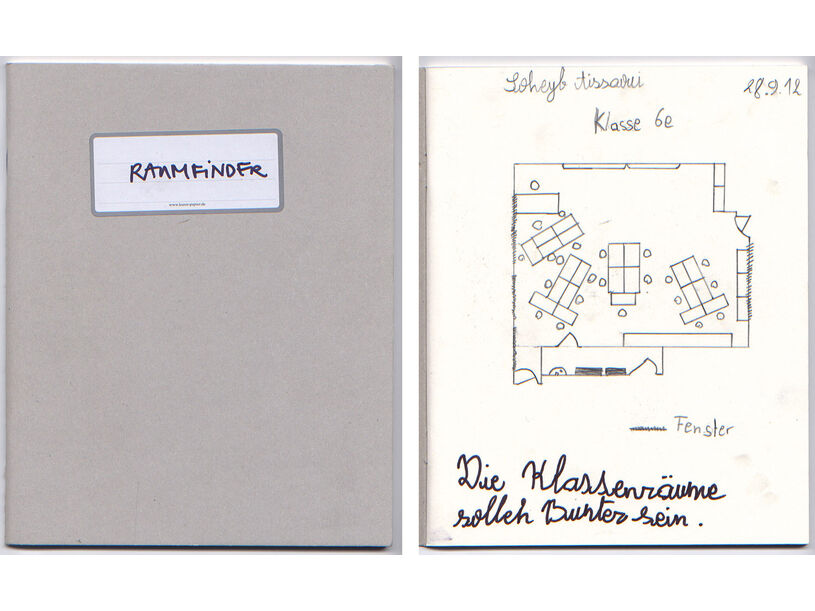 RAUMFiNDER
www.kunst-papier.de
Soheyb Aissaoui
28.9.12
Klasse 6e
Fenster
Die Klassenräume
sollen Bunter sein.